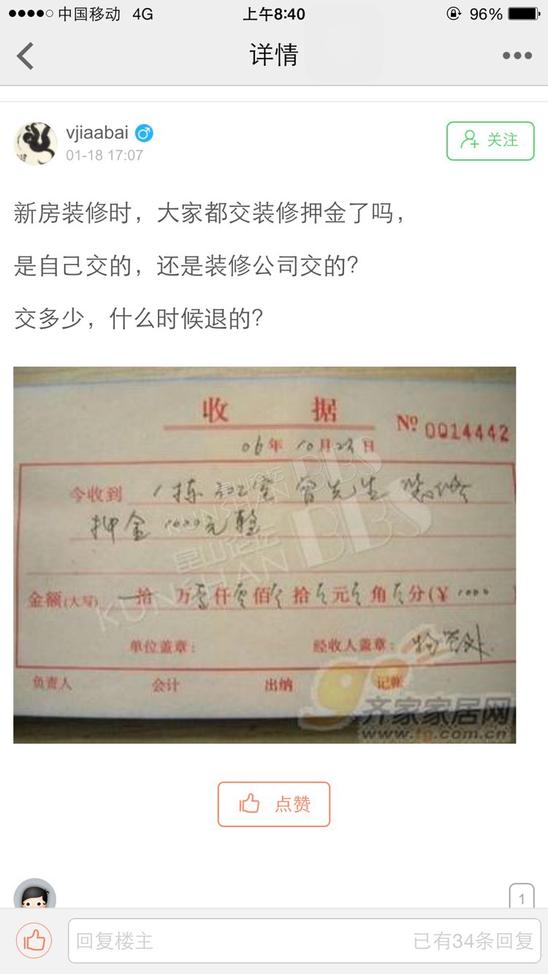 中国移动 4G 上午8:40 96%
详情
vjiaabai
01-18 17:07
关注
新房装修时，大家都交装修押金了吗，
是自己交的，还是装修公司交的？
交多少，什么时候退的？
收 据
№ 0014442
06年 10月23日
今收到 1栋 室 曾先生 装修
押金 1000元整
金额(大写) 拾 万壹仟零佰零拾零元零角零分(¥ 1000 )
单位盖章： 经收人盖章：
负责人 会计 出纳 记帐
昆山论坛
KUNSHAN BBS
齐家家居网
www.tg.com.cn
点赞
1
回复楼主 已有34条回复